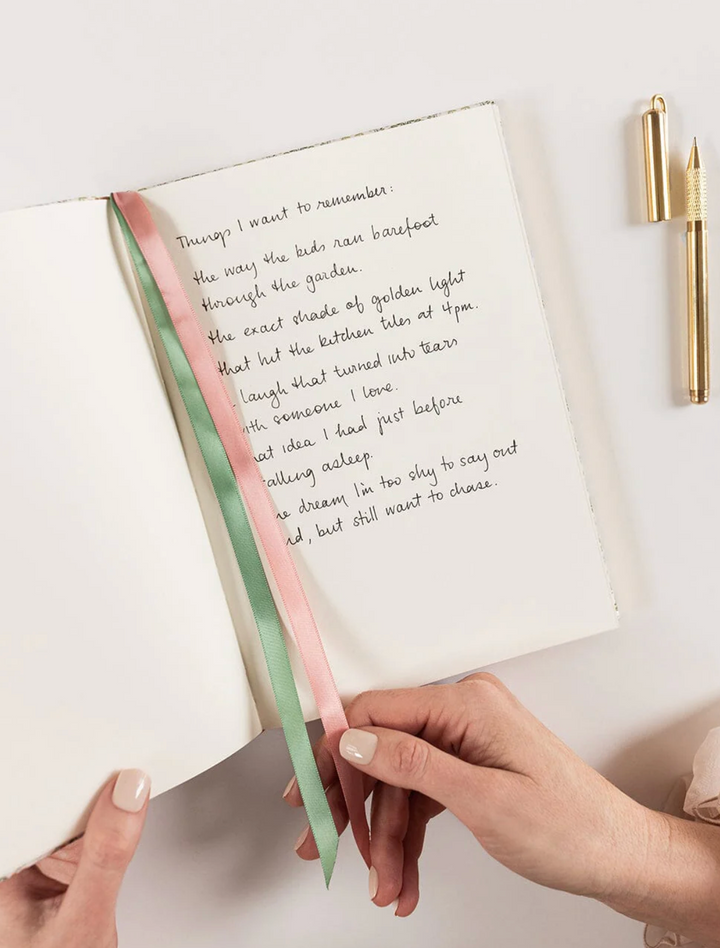 Things I want to remember:
the way the kids ran barefoot
through the garden.
the exact shade of golden light
that hit the kitchen tiles at 4pm.
laugh that turned into tears
with someone I love.
that idea I had just before
falling asleep.
the dream I'm too shy to say out
, but still want to chase.